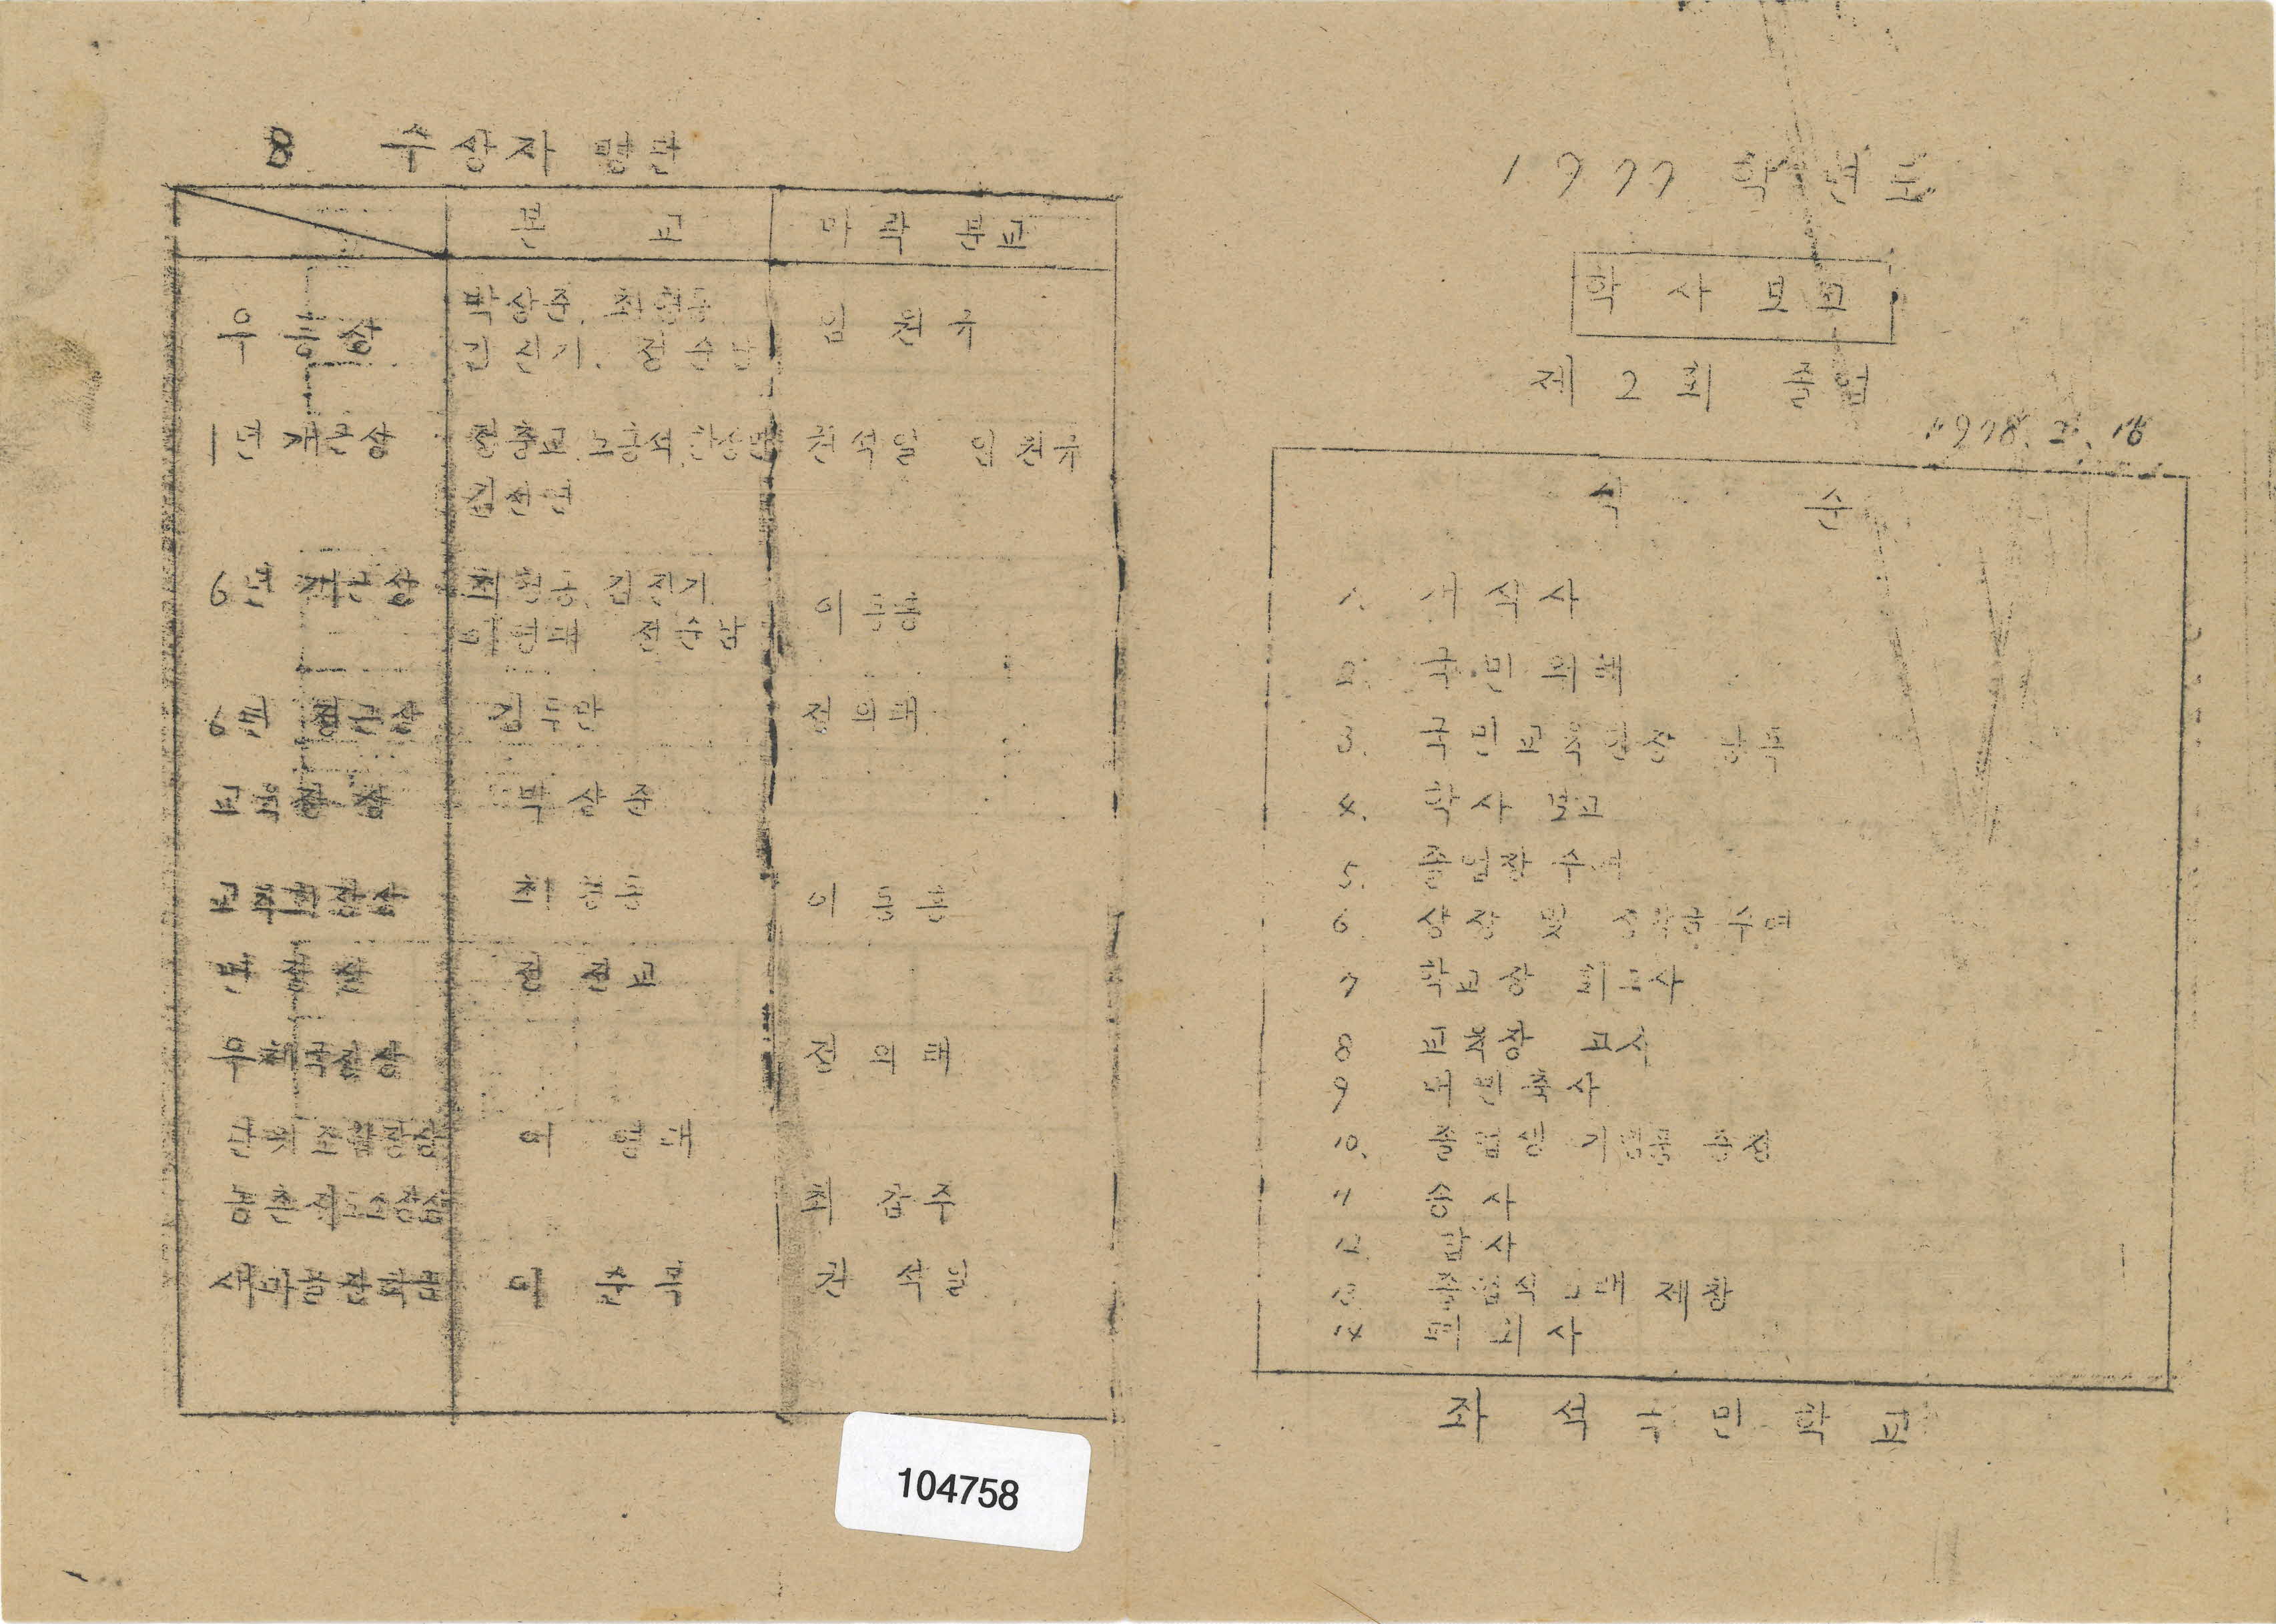 8 수상자 명단
본 교 마락 분교
우등상 박상준. 최현동 임 천규
김진기. 정순남
1년 개근상 노흥석 권석일 임천규
6년 개근상 최현동. 김진기. 이동흥
이현대 전순남
6년 정근상 김두만 전의태
교육장상 박상준
교육회장상 최현동 이동흥
우체국장상 전의태
단위조합장상 이
농촌지도소장상 최갑주
새마을장학금 이 권석일
104758
1977 학년도
학사보고
제 2 회 졸업
1978. 2. 16
식 순
1. 개식사
2. 국민의례
3. 국민교육헌장 낭독
4. 학사 보고
5. 졸업장 수여
6 상장 및 장학금 수여
7 학교장 회고사
8 교육장 고사
9 내빈축사
10. 졸업생 기념품 증정
11 송사
12. 답사
13 졸업식 노래 제창
14 폐회사
좌석국민학교